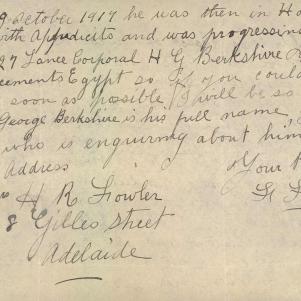 9 October 1917 he was then in Ho
with Apendicits and was progressing
97 Lance Corporal H G Berkshire
cements Egypt so if you could
soon as possible I will be so
George Berkshire is his full name
who is enquirnig about him
Address Your
H R Fowler
8 Gilles Street
Adelaide